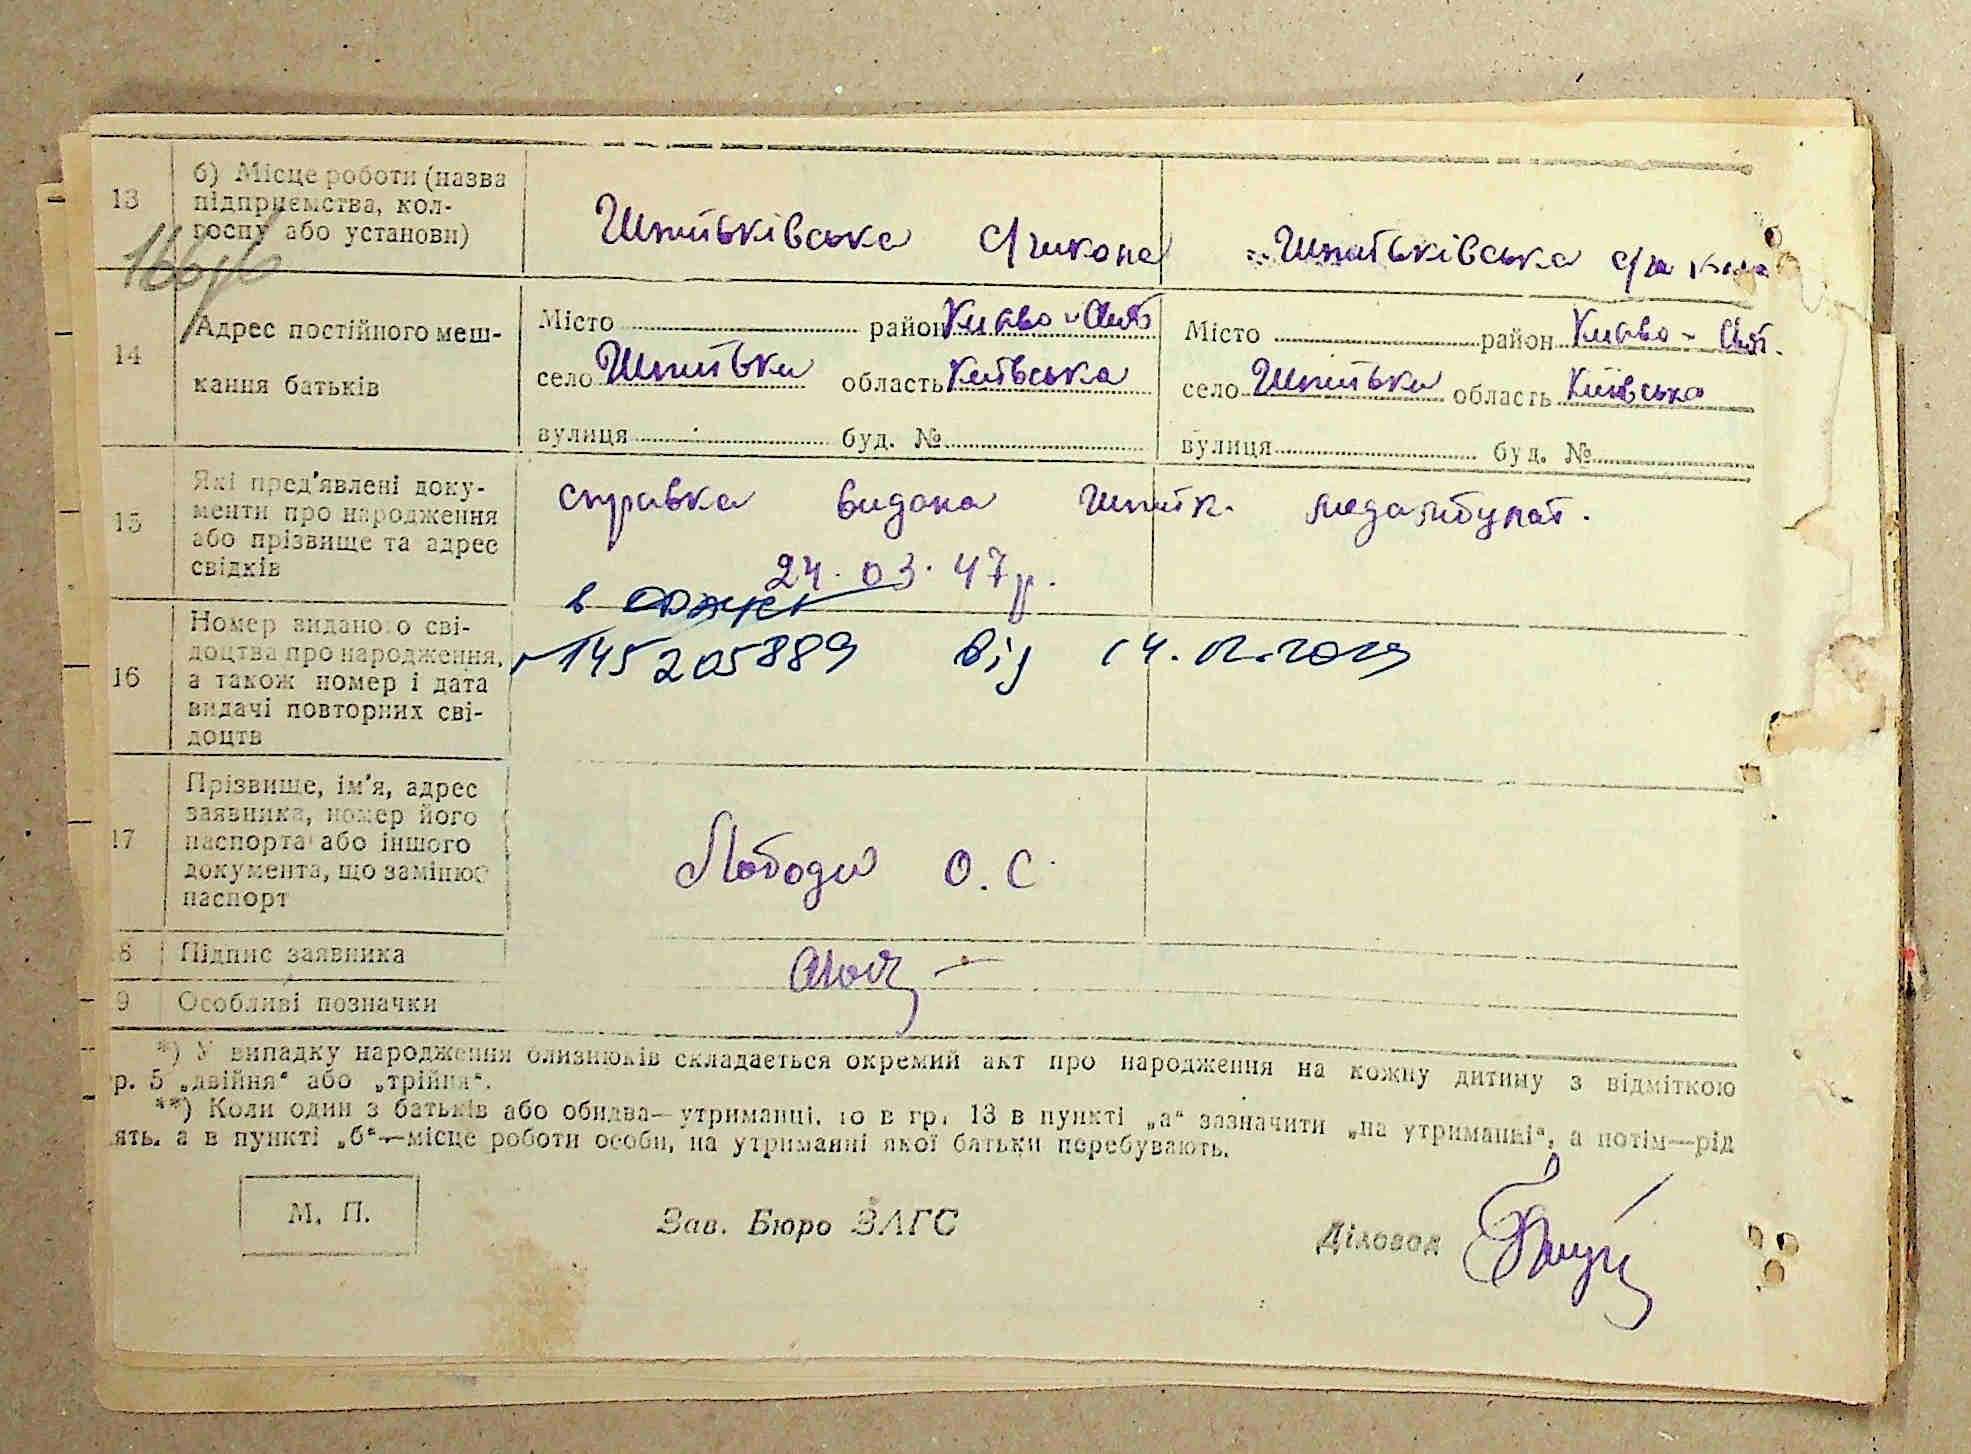 13
б) Місце роботи (назва
підприємства, кол-
госпу або установи)
Шпитьківська с/школа
Шпитьківська с/школа
166/б
14
Адрес постійного меш-
кання батьків
Місто район Києво-Свят
село Шпитьки область Київська
вулиця буд. №
Місто район Києво-Свят.
село Шпитьки область Київська
вулиця буд. №
15
Які пред'явлені доку-
менти про народження
або прізвище та адрес
свідків
справка видана Шпитьк. медамбулат.
24.03.47р.
16
Номер виданого сві-
доцтва про народження,
а також номер і дата
видачі повторних сві-
доцтв
145205889 від
17
Прізвище, ім'я, адрес
заявника, номер його
паспорта або іншого
документа, що замінює
паспорт
Лободи О. С.
8
Підпис заявника
9
Особливі позначки
*) У випадку народження близнюків складається окремий акт про народження на кожну дитину з відміткою
р. 5 „двійня“ або „трійня“.
**) Коли один з батьків або обидва—утриманці, то в гр. 13 в пункті „а“ зазначити „на утриманні“, а потім—рід
ять, а в пункті „б“—місце роботи особи, на утриманні якої батьки перебувають.
М. П.
Зав. Бюро ЗАГС
Діловод